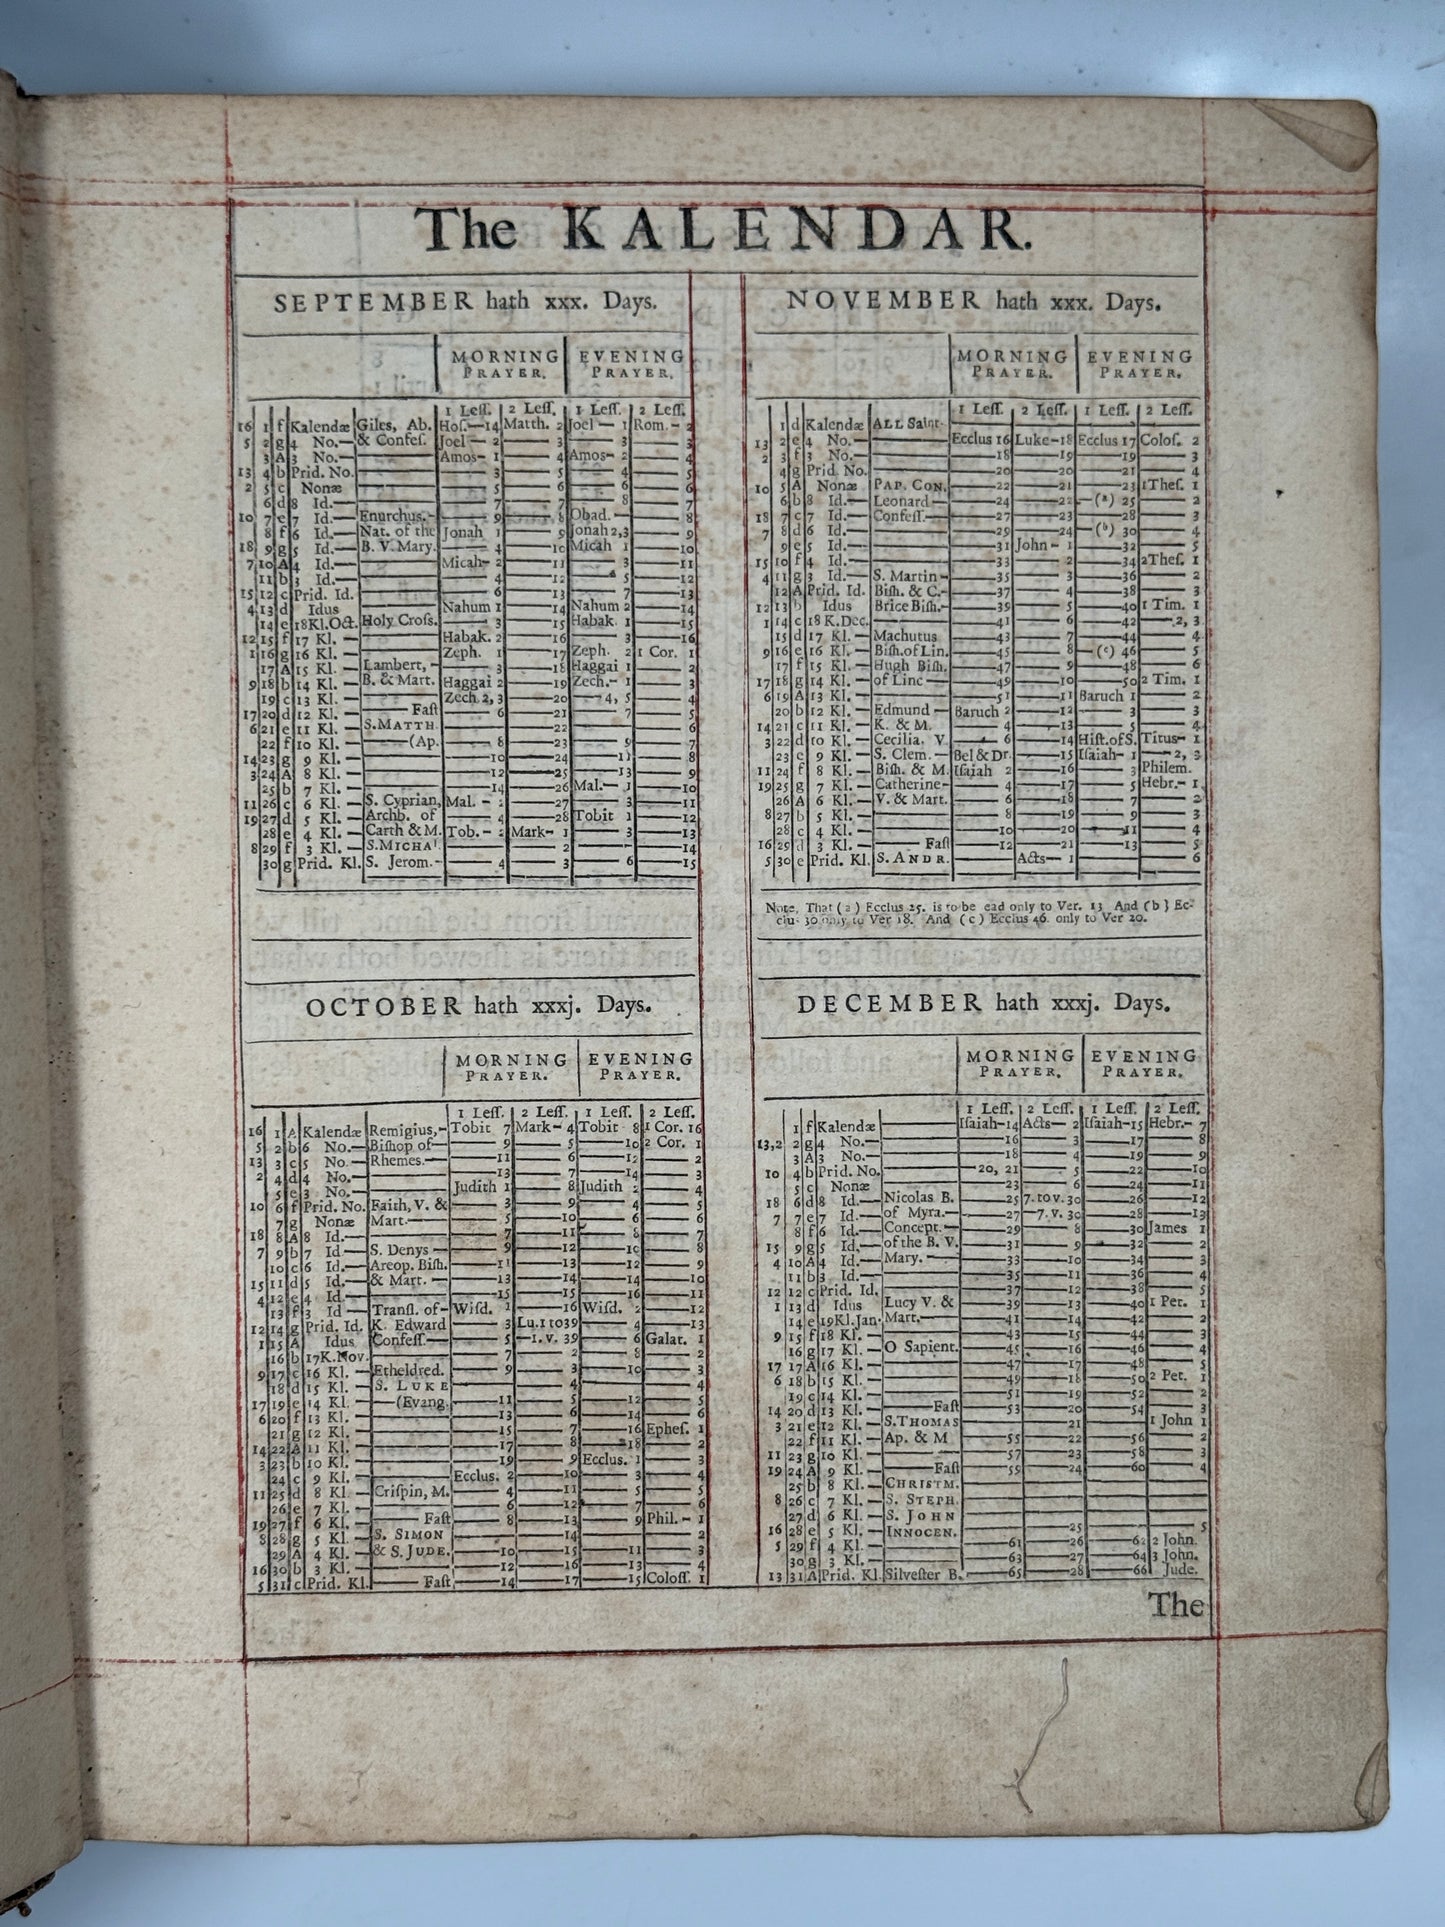 The KALENDAR.
SEPTEMBER hath xxx. Days.
MORNING PRAYER. EVENING PRAYER.
1 Leſſ. 2 Leſſ. 1 Leſſ. 2 Leſſ.
16 1 f Kalendæ Giles, Ab. Hoſ.—14 Matth. 2 Joel — 1 Rom. - 2
5 2 g 4 No.— & Confeſ. Joel — 2 — 3 — 3 — 3
3 A 3 No.— — Amos- 1 — 4 Amos- 2 — 4
13 4 b Prid. No. — — 3 — 5 — 4 — 5
2 5 c Nonæ — — 5 — 6 — 6 — 6
6 d 8 Id.— — — 7 — 7 — 8 — 7
10 7 e 7 Id.— Enurchus.- — 9 — 8 Obad. — — 8
8 f 6 Id.— Nat. of the Jonah 1 — 9 Jonah 2,3 — 9
18 9 g 5 Id.— B. V. Mary. — 4 — 10 Micah 1 — 10
7 10 A 4 Id.— — Micah- 2 — 11 — 3 — 11
11 b 3 Id.— — — 4 — 12 — 5 — 12
15 12 c Prid. Id. — — 6 — 13 — 7 — 13
4 13 d Idus — Nahum 1 — 14 Nahum 2 — 14
14 e 18 Kl. Oct. Holy Croſs. — 3 — 15 Habak. 1 — 15
12 15 f 17 Kl. — — Habak. 2 — 16 — 3 — 16
1 16 g 16 Kl. — — Zeph. 1 — 17 Zeph. 2 1 Cor. 1
17 A 15 Kl. — Lambert, - — 3 — 18 Haggai 1 — 2
9 18 b 14 Kl. — B. & Mart. Haggai 2 — 19 Zech.- 1 — 3
19 c 13 Kl. — — Zech. 2, 3 — 20 — 4, 5 — 4
17 20 d 12 Kl. — — Faſt — 6 — 21 — 7 — 5
6 21 e 11 Kl. — S. MATTH. — — 22 — — 6
22 f 10 Kl. — —(Ap. — 8 — 23 — 9 — 7
14 23 g 9 Kl. — — — 10 — 24 — 11 — 8
3 24 A 8 Kl. — — — 12 — 25 — 13 — 9
25 b 7 Kl. — — — 14 — 26 Mal.- 1 — 10
11 26 c 6 Kl. — S. Cyprian, Mal. - 2 — 27 — 3 — 11
19 27 d 5 Kl. — Archb. of — 4 — 28 Tobit 1 — 12
28 e 4 Kl. — Carth & M. Tob. - 2 Mark- 1 — 3 — 13
8 29 f 3 Kl. — S. MICHA — — 2 — — 14
30 g Prid. Kl. S. Jerom.- — 4 — 3 — 6 — 15
OCTOBER hath xxxj. Days.
MORNING PRAYER. EVENING PRAYER.
1 Leſſ. 2 Leſſ. 1 Leſſ. 2 Leſſ.
16 1 A Kalendæ Remigius,- Tobit 7 Mark- 4 Tobit 8 1 Cor. 16
5 2 b 6 No.— Biſhop of — 9 — 5 — 10 2 Cor. 1
13 3 c 5 No — Rhemes.— — 11 — 6 — 12 — 2
2 4 d 4 No.— — — 13 — 7 — 14 — 3
5 e 3 No.— — Judith 1 — 8 Judith 2 — 4
10 6 f Prid. No. Faith, V. & — 3 — 9 — 4 — 5
7 g Nonæ Mart.— — 5 — 10 — 6 — 6
18 8 A 8 Id.— — — 7 — 11 — 8 — 7
7 9 b 7 Id — S. Denys — — 9 — 12 — 10 — 8
10 c 6 Id.— Areop. Biſh. — 11 — 13 — 12 — 9
15 11 d 5 Id.— & Mart. — — 13 — 14 — 14 — 10
4 12 e 4 Id.— — — 15 — 15 — 16 — 11
13 f 3 Id — Tranſl. of- Wiſd. 1 — 16 Wiſd. 2 — 12
12 14 g Prid. Id. K. Edward — 3 Lu. 1 to 39 — 4 — 13
1 15 A Idus Confeſſ.— — 5 — 1. v. 39 — 6 Galat. 1
16 b 17 K. Nov. — — 7 — 2 — 8 — 2
9 17 c 16 Kl. — Etheldred. — 9 — 3 — 10 — 3
18 d 15 Kl. — S. LUKE — — 4 — — 4
17 19 e 14 Kl. — —(Evang. — 11 — 5 — 12 — 5
6 20 f 13 Kl. — — — 13 — 6 — 14 — 6
21 g 12 Kl. — — — 15 — 7 — 16 Epheſ. 1
14 22 A 11 Kl. — — — 17 — 8 — 18 — 2
3 23 b 10 Kl. — — — 19 — 9 Ecclus. 1 — 3
24 c 9 Kl. — — Ecclus. 2 — 10 — 3 — 4
11 25 d 8 Kl. — Criſpin, M. — 4 — 11 — 5 — 5
26 e 7 Kl. — — — 6 — 12 — 7 — 6
19 27 f 6 Kl. — — Faſt — 8 — 13 — 9 Phil. - 1
8 28 g 5 Kl. — S. SIMON — — 14 — — 2
29 A 4 Kl. — & S. JUDE. — 10 — 15 — 11 — 3
16 30 b 3 Kl. — — — 12 — 16 — 13 — 4
5 31 c Prid. Kl. — Faſt — 14 — 17 — 15 Coloſſ. 1
NOVEMBER hath xxx. Days.
MORNING PRAYER. EVENING PRAYER.
1 Leſſ. 2 Leſſ. 1 Leſſ. 2 Leſſ.
1 d Kalendæ ALL Saint- — — — —
13 2 e 4 No.— — Ecclus 16 Luke-18 Ecclus 17 Coloſ. 2
2 3 f 3 No.— — — 18 — 19 — 19 — 3
4 g Prid No. — — 20 — 20 — 21 — 4
10 5 A Nonæ PAP. CON. — 22 — 21 — 23 1 Theſ. 1
6 b 8 Id.— Leonard — — 24 — 22 — (a) 25 — 2
18 7 c 7 Id.— Confeſſ.— — 27 — 23 — 28 — 3
7 8 d 6 Id.— — — 29 — 24 — (b) 30 — 4
9 e 5 Id.— — — 31 John - 1 — 32 — 5
15 10 f 4 Id.— — — 33 — 2 — 34 2 Theſ. 1
4 11 g 3 Id.— S. Martin - — 35 — 3 — 36 — 2
12 A Prid. Id. Biſh. & C.- — 37 — 4 — 38 — 3
12 13 b Idus Brice Biſh.- — 39 — 5 — 40 1 Tim. 1
1 14 c 18 K. Dec. — — 41 — 6 — 42 — 2, 3
15 d 17 Kl. — Machutus — 43 — 7 — 44 — 4
9 16 e 16 Kl. — Biſh. of Lin. — 45 — 8 — (c) 46 — 5
17 f 15 Kl. — Hugh Biſh. — 47 — 9 — 48 — 6
17 18 g 14 Kl. — of Linc — — 49 — 10 — 50 2 Tim. 1
6 19 A 13 Kl. — — — 51 — 11 Baruch 1 — 2
20 b 12 Kl. — Edmund — Baruch 2 — 12 — 3 — 3
14 21 c 11 Kl. — K. & M. — 4 — 13 — 5 — 4
3 22 d 10 Kl. — Cecilia. V. — 6 — 14 Hiſt. of S. Titus- 1
23 e 9 Kl. — S. Clem. — Bel & Dr. — 15 Iſaiah- 1 — 2, 3
11 24 f 8 Kl. — Biſh. & M. Iſaiah 2 — 16 — 3 Philem.
19 25 g 7 Kl. — Catherine- — 4 — 17 — 5 Hebr.- 1
26 A 6 Kl. — V. & Mart. — 6 — 18 — 7 — 2
8 27 b 5 Kl. — — — 8 — 19 — 9 — 3
28 c 4 Kl. — — — 10 — 20 — 11 — 4
16 29 d 3 Kl. — — Faſt — 12 — 21 — 13 — 5
5 30 e Prid. Kl. S. ANDR. — Acts- 1 — — 6
Note, That (a) Ecclus 25. is to be ead only to Ver. 13 And (b) Ec-
clus 30 only to Ver 18. And (c) Ecclus 46. only to Ver 20.
DECEMBER hath xxxj. Days.
MORNING PRAYER. EVENING PRAYER.
1 Leſſ. 2 Leſſ. 1 Leſſ. 2 Leſſ.
1 f Kalendæ — Iſaiah-14 Acts- 2 Iſaiah-15 Hebr.- 7
13,2 2 g 4 No.— — — 16 — 3 — 17 — 8
3 A 3 No.— — — 18 — 4 — 19 — 9
10 4 b Prid. No. — — 20, 21 — 5 — 22 — 10
5 c Nonæ — — 23 — 6 — 24 — 11
18 6 d 8 Id.— Nicolas B. — 25 7. to v. 30 — 26 — 12
7 7 e 7 Id.— of Myra.— — 27 — 7. v. 30 — 28 — 13
8 f 6 Id.— Concept.— — 29 — 8 — 30 James 1
15 9 g 5 Id.— of the B. V. — 31 — 9 — 32 — 2
4 10 A 4 Id.— Mary. — — 33 — 10 — 34 — 3
11 b 3 Id.— — — 35 — 11 — 36 — 4
12 12 c Prid. Id. — — 37 — 12 — 38 — 5
1 13 d Idus Lucy V. & — 39 — 13 — 40 1 Pet. 1
14 e 19 Kl. Jan- Mart.— — 41 — 14 — 42 — 2
9 15 f 18 Kl. — — — 43 — 15 — 44 — 3
16 g 17 Kl. — O Sapient. — 45 — 16 — 46 — 4
17 17 A 16 Kl. — — — 47 — 17 — 48 — 5
6 18 b 15 Kl. — — — 49 — 18 — 50 2 Pet. 1
19 c 14 Kl. — — — 51 — 19 — 52 — 2
14 20 d 13 Kl. — — Faſt — 53 — 20 — 54 — 3
3 21 e 12 Kl. — S. THOMAS — — 21 — 1 John 1
22 f 11 Kl. — Ap. & M — 55 — 22 — 56 — 2
11 23 g 10 Kl. — — — 57 — 23 — 58 — 3
19 24 A 9 Kl. — — Faſt — 59 — 24 — 60 — 4
25 b 8 Kl. — CHRISTM. — — — —
8 26 c 7 Kl. — S. STEPH. — — — —
27 d 6 Kl. — S. JOHN — — — —
16 28 e 5 Kl. — INNOCEN. — — 25 — — 5
5 29 f 4 Kl. — — — 61 — 26 — 62 2 John.
30 g 3 Kl. — — — 63 — 27 — 64 3 John.
13 31 A Prid. Kl Silveſter B. — 65 — 28 — 66 Jude.
The